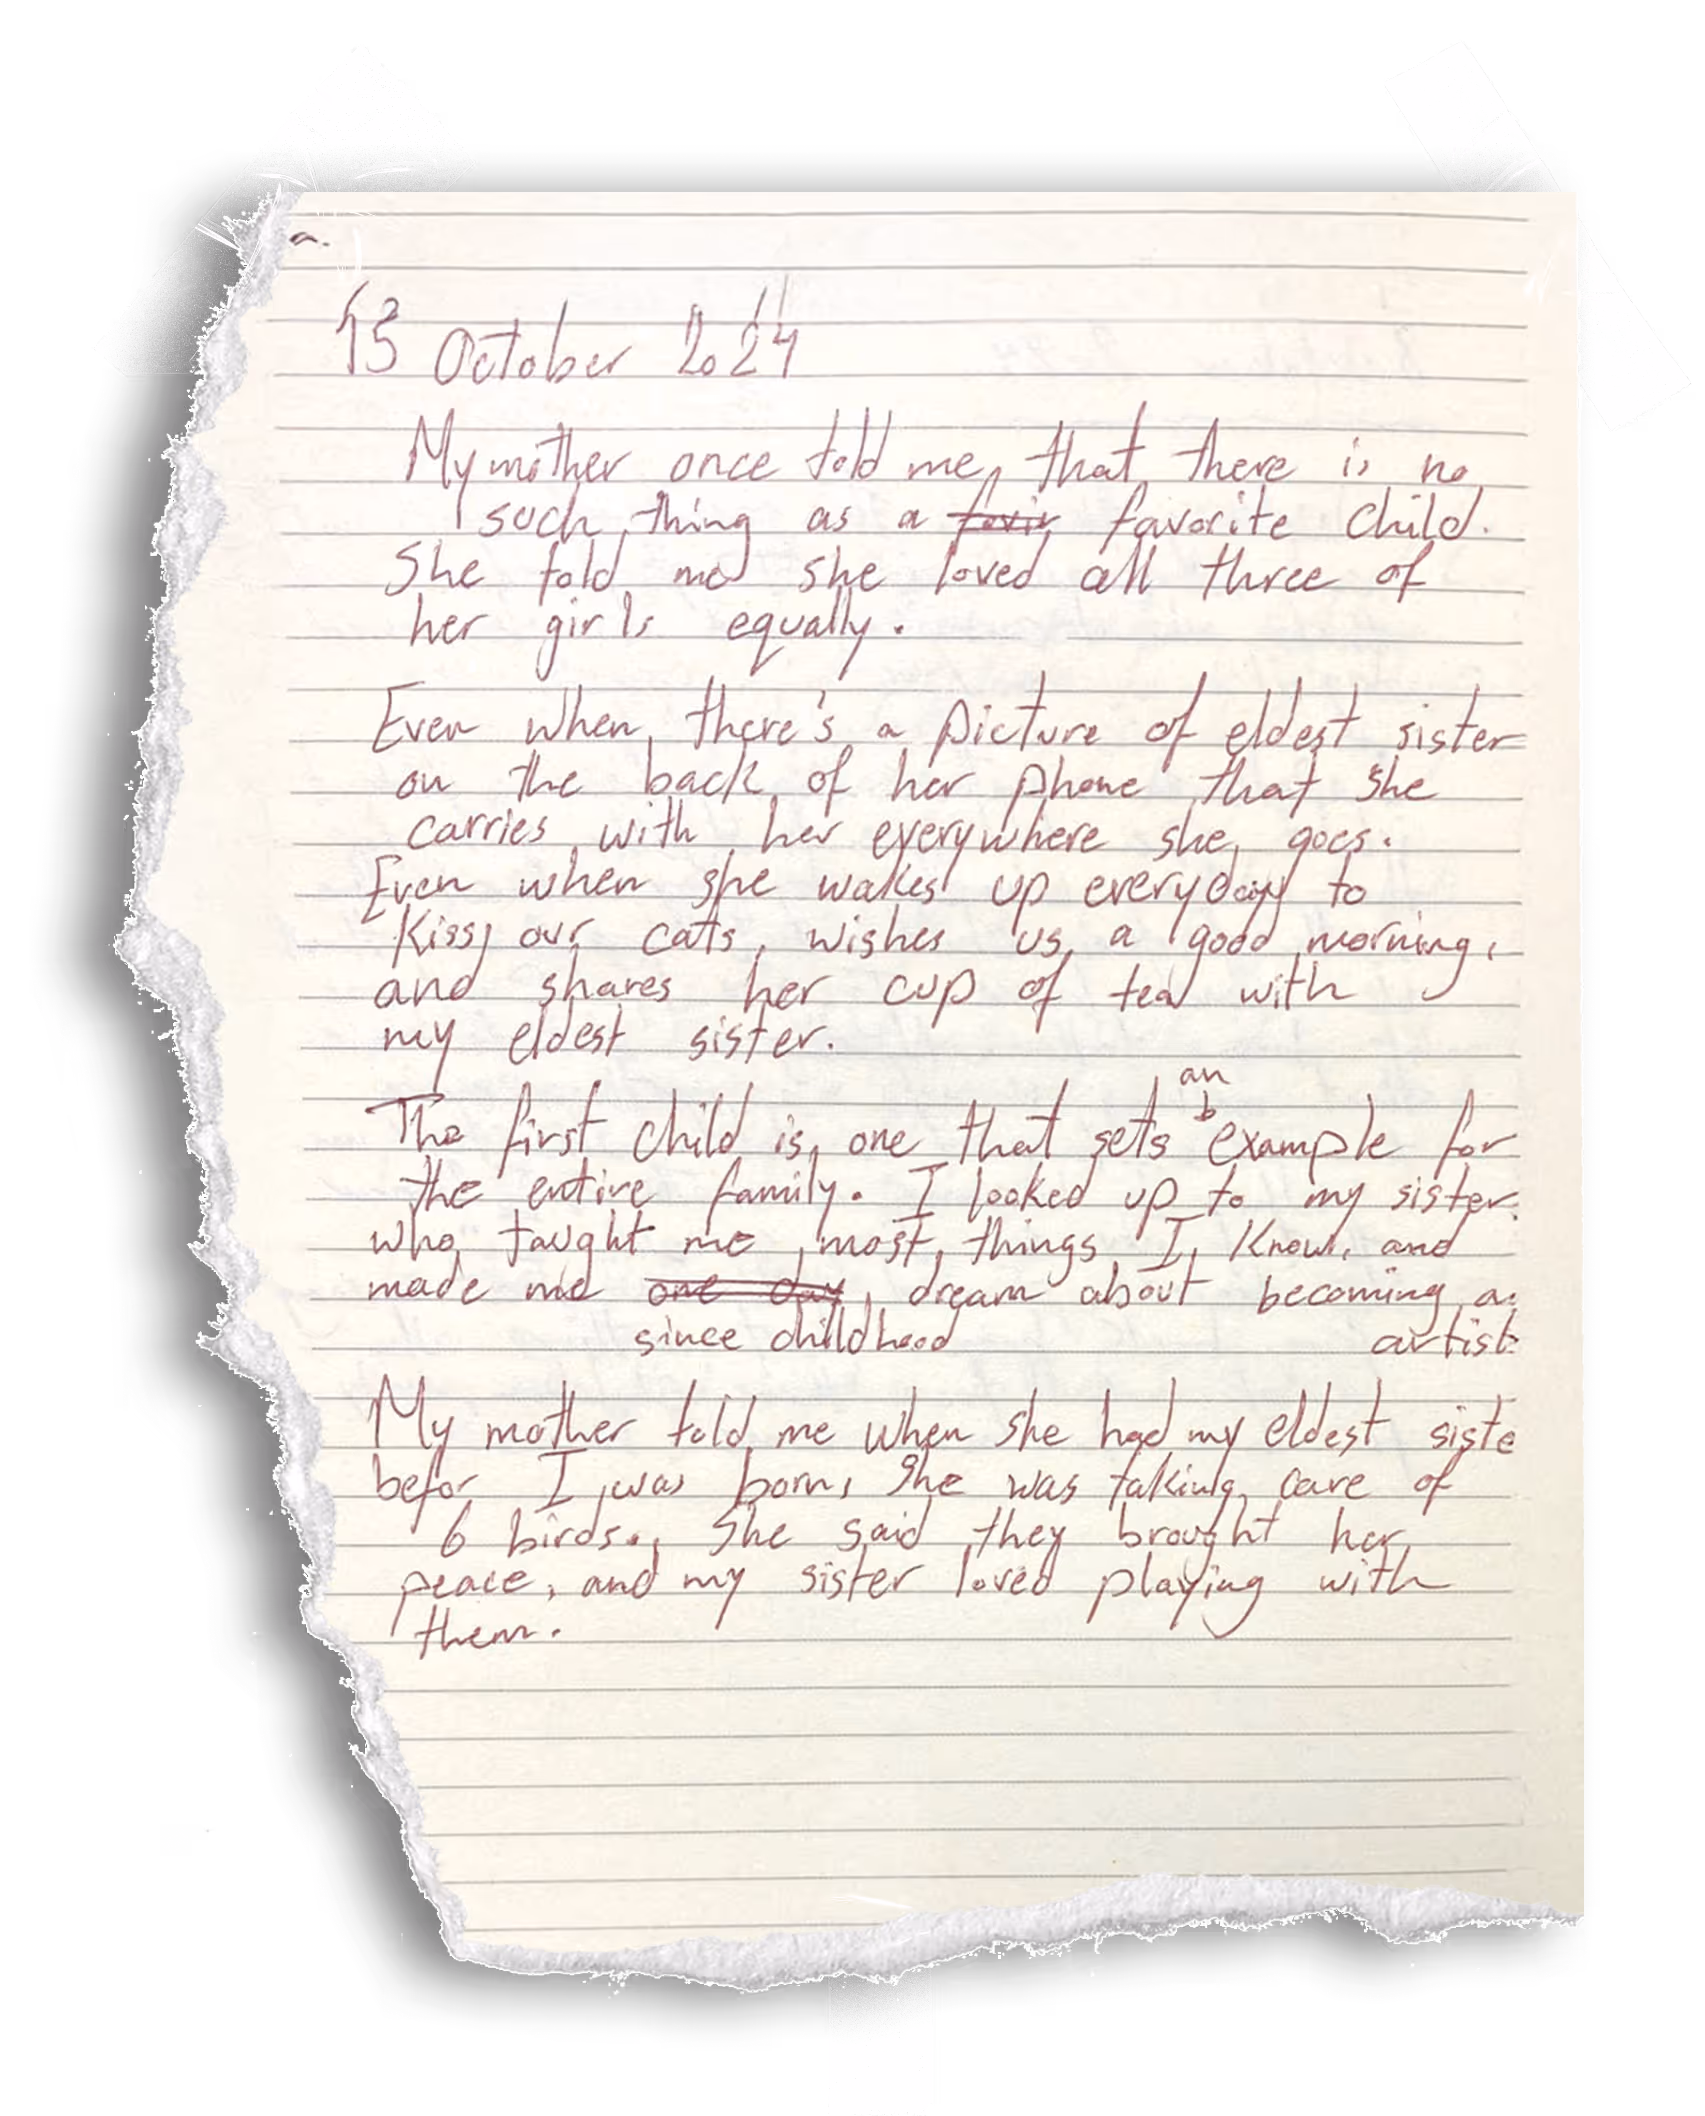 a.
15 October 2024
My mother once told me, that there is no
such thing as a favorite child.
She told me she loved all three of
her girls equally.
Even when there's a picture of eldest sister
on the back of her phone that she
carries with her everywhere she goes.
Even when she wakes up everyday to
kiss our cats, wishes us a good morning,
and shares her cup of tea with
my eldest sister.
an
The first child is one that sets example for
the entire family. I looked up to my sister
who taught me most things I know, and
made me one day, dream about becoming a
since childhood artist
My mother told me when she had my eldest siste
befor I was born, she was taking care of
6 birds. She said they brought her
peace, and my sister loved playing with
them.